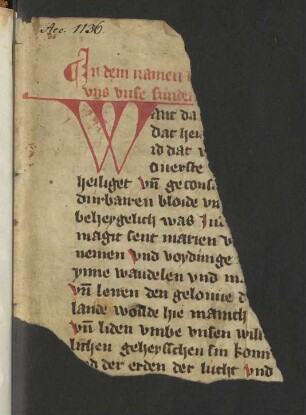 Acc. 1136.
In dem namen
vns vnse sunder
Want da
dat hei
id dat v
ouerste
heiliget vn̄ gecons
durbairen bloide vn
beheygelich was In
magit sent marien v
nemen vnd vordinge
ynne wandelen vnd m
vn̄ leiren den gelouue d
lande wolde hie manch
vn̄ liden vmbe vnsen will
lichen geheysschen sin konn
d der erden der lucht vnd